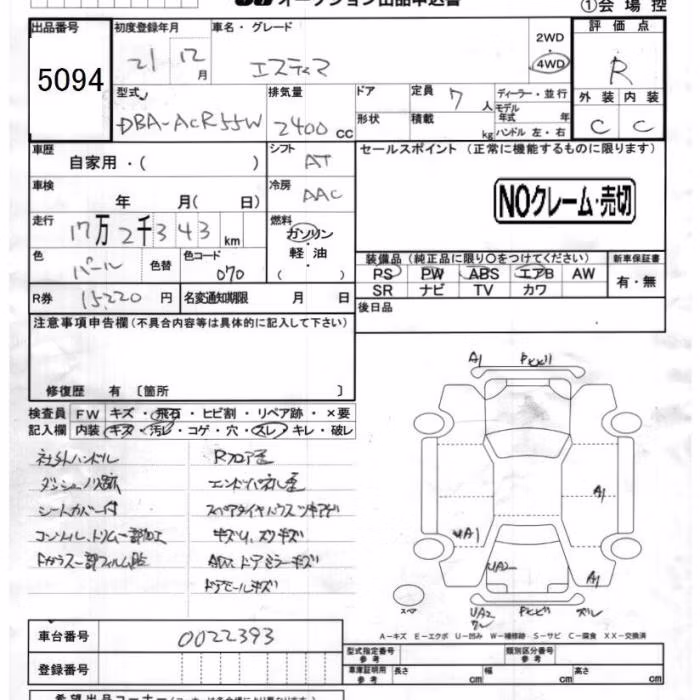 オークション出品申込書
①会場控
出品番号
5094
初度登録年月
21 12月
車名・グレード
エスティマ
2WD
4WD
評価点
R
外装 内装
C C
型式
DBA-ACR55W
排気量
2400 cc
ドア
形状
定員 7 人
積載 kg
ディーラー・並行
モデル年式 年
ハンドル 左・右
車歴
自家用・( )
シフト
AT
セールスポイント (正常に機能するものに限ります)
NOクレーム・売切
車検
年 月( 日)
冷房
AAC
走行
17万2千343km
燃料
ガソリン
軽油
( )
色
パール
色替
色コード
070
装備品(純正品に限り○をつけてください)
PS PW ABS エアB AW
SR ナビ TV カワ
新車保証書
有・無
R券 15,220 円
名変通知期限 月 日
後日品
注意事項申告欄(不具合内容等は具体的に記入して下さい)
修復歴 有 〔箇所 〕
検査員記入欄
FW キズ・飛石・ヒビ割・リペア跡・×要
内装 キズ・汚レ・コゲ・穴・スレ・キレ・破レ
社外ハンドル
ダッシュノリ跡
シートカバー付
コンソル、トリム一部加工
Fガラス一部フィルム貼
Rフロア歪
エンドパネル歪
スペアタイヤハウスツキアゲ
キズリ、スリキズ
ドアモールキズ
A1
A1
UA1
UA2
A1
スペ
UA2
ズレ
A-キズ E-エクボ U-凹み W-補修跡 S-サビ C-腐食 XX-交換済
車台番号
0022393
登録番号
型式指定番号
参考
類別区分番号
参考
車庫証明用
参考
長さ cm
幅 cm
高さ cm
希望出品コーナー